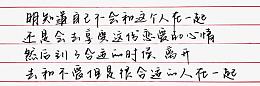 明知道自己不会和这个人在一起
还是会去享受这份恋爱的心情
然后到了合适的时候、离开
去和不爱但是很合适的人在一起